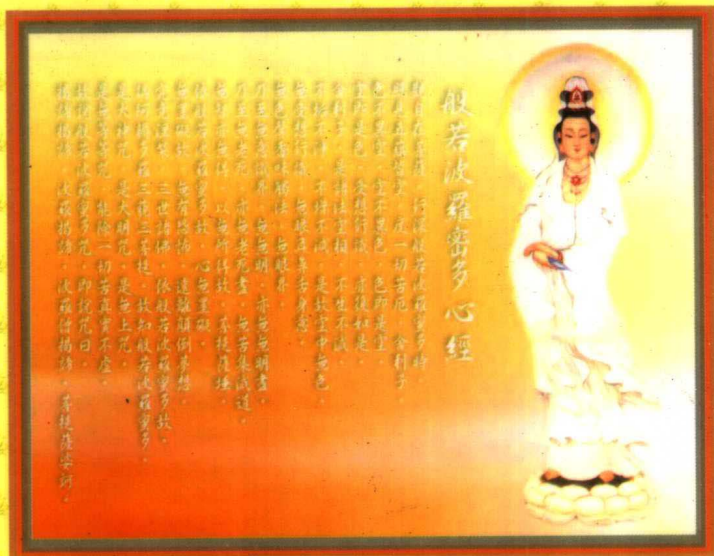 般若波羅密多心經
觀自在菩薩。行深般若波羅蜜多時。
照見五蘊皆空。度一切苦厄。舍利子。
色不異空。空不異色。色即是空
空即是色。受想行識。亦復如是。
舍利子。是諸法空相。不生不滅。
不垢不淨。不增不減。是故空中無色。
無受想行識。無眼耳鼻舌身意。
無色聲香味觸法。無眼界。
乃至無意識界。無無明。亦無無明盡。
乃至無老死。亦無老死盡。無苦集滅道。
無智亦無得。以無所得故。菩提薩埵。
依般若波羅蜜多故。心無罣礙。
無罣礙故。無有恐怖。遠離顛倒夢想。
究竟涅槃。三世諸佛。依般若波羅蜜多故。
得阿耨多羅三藐三菩提。故知般若波羅蜜多。
是大神咒。是大明咒。是無上咒。
是無等等咒。能除一切苦真實不虛。
故說般若波羅蜜多咒。即說咒曰。
揭諦揭諦。波羅揭諦。波羅僧揭諦。菩提薩婆訶。